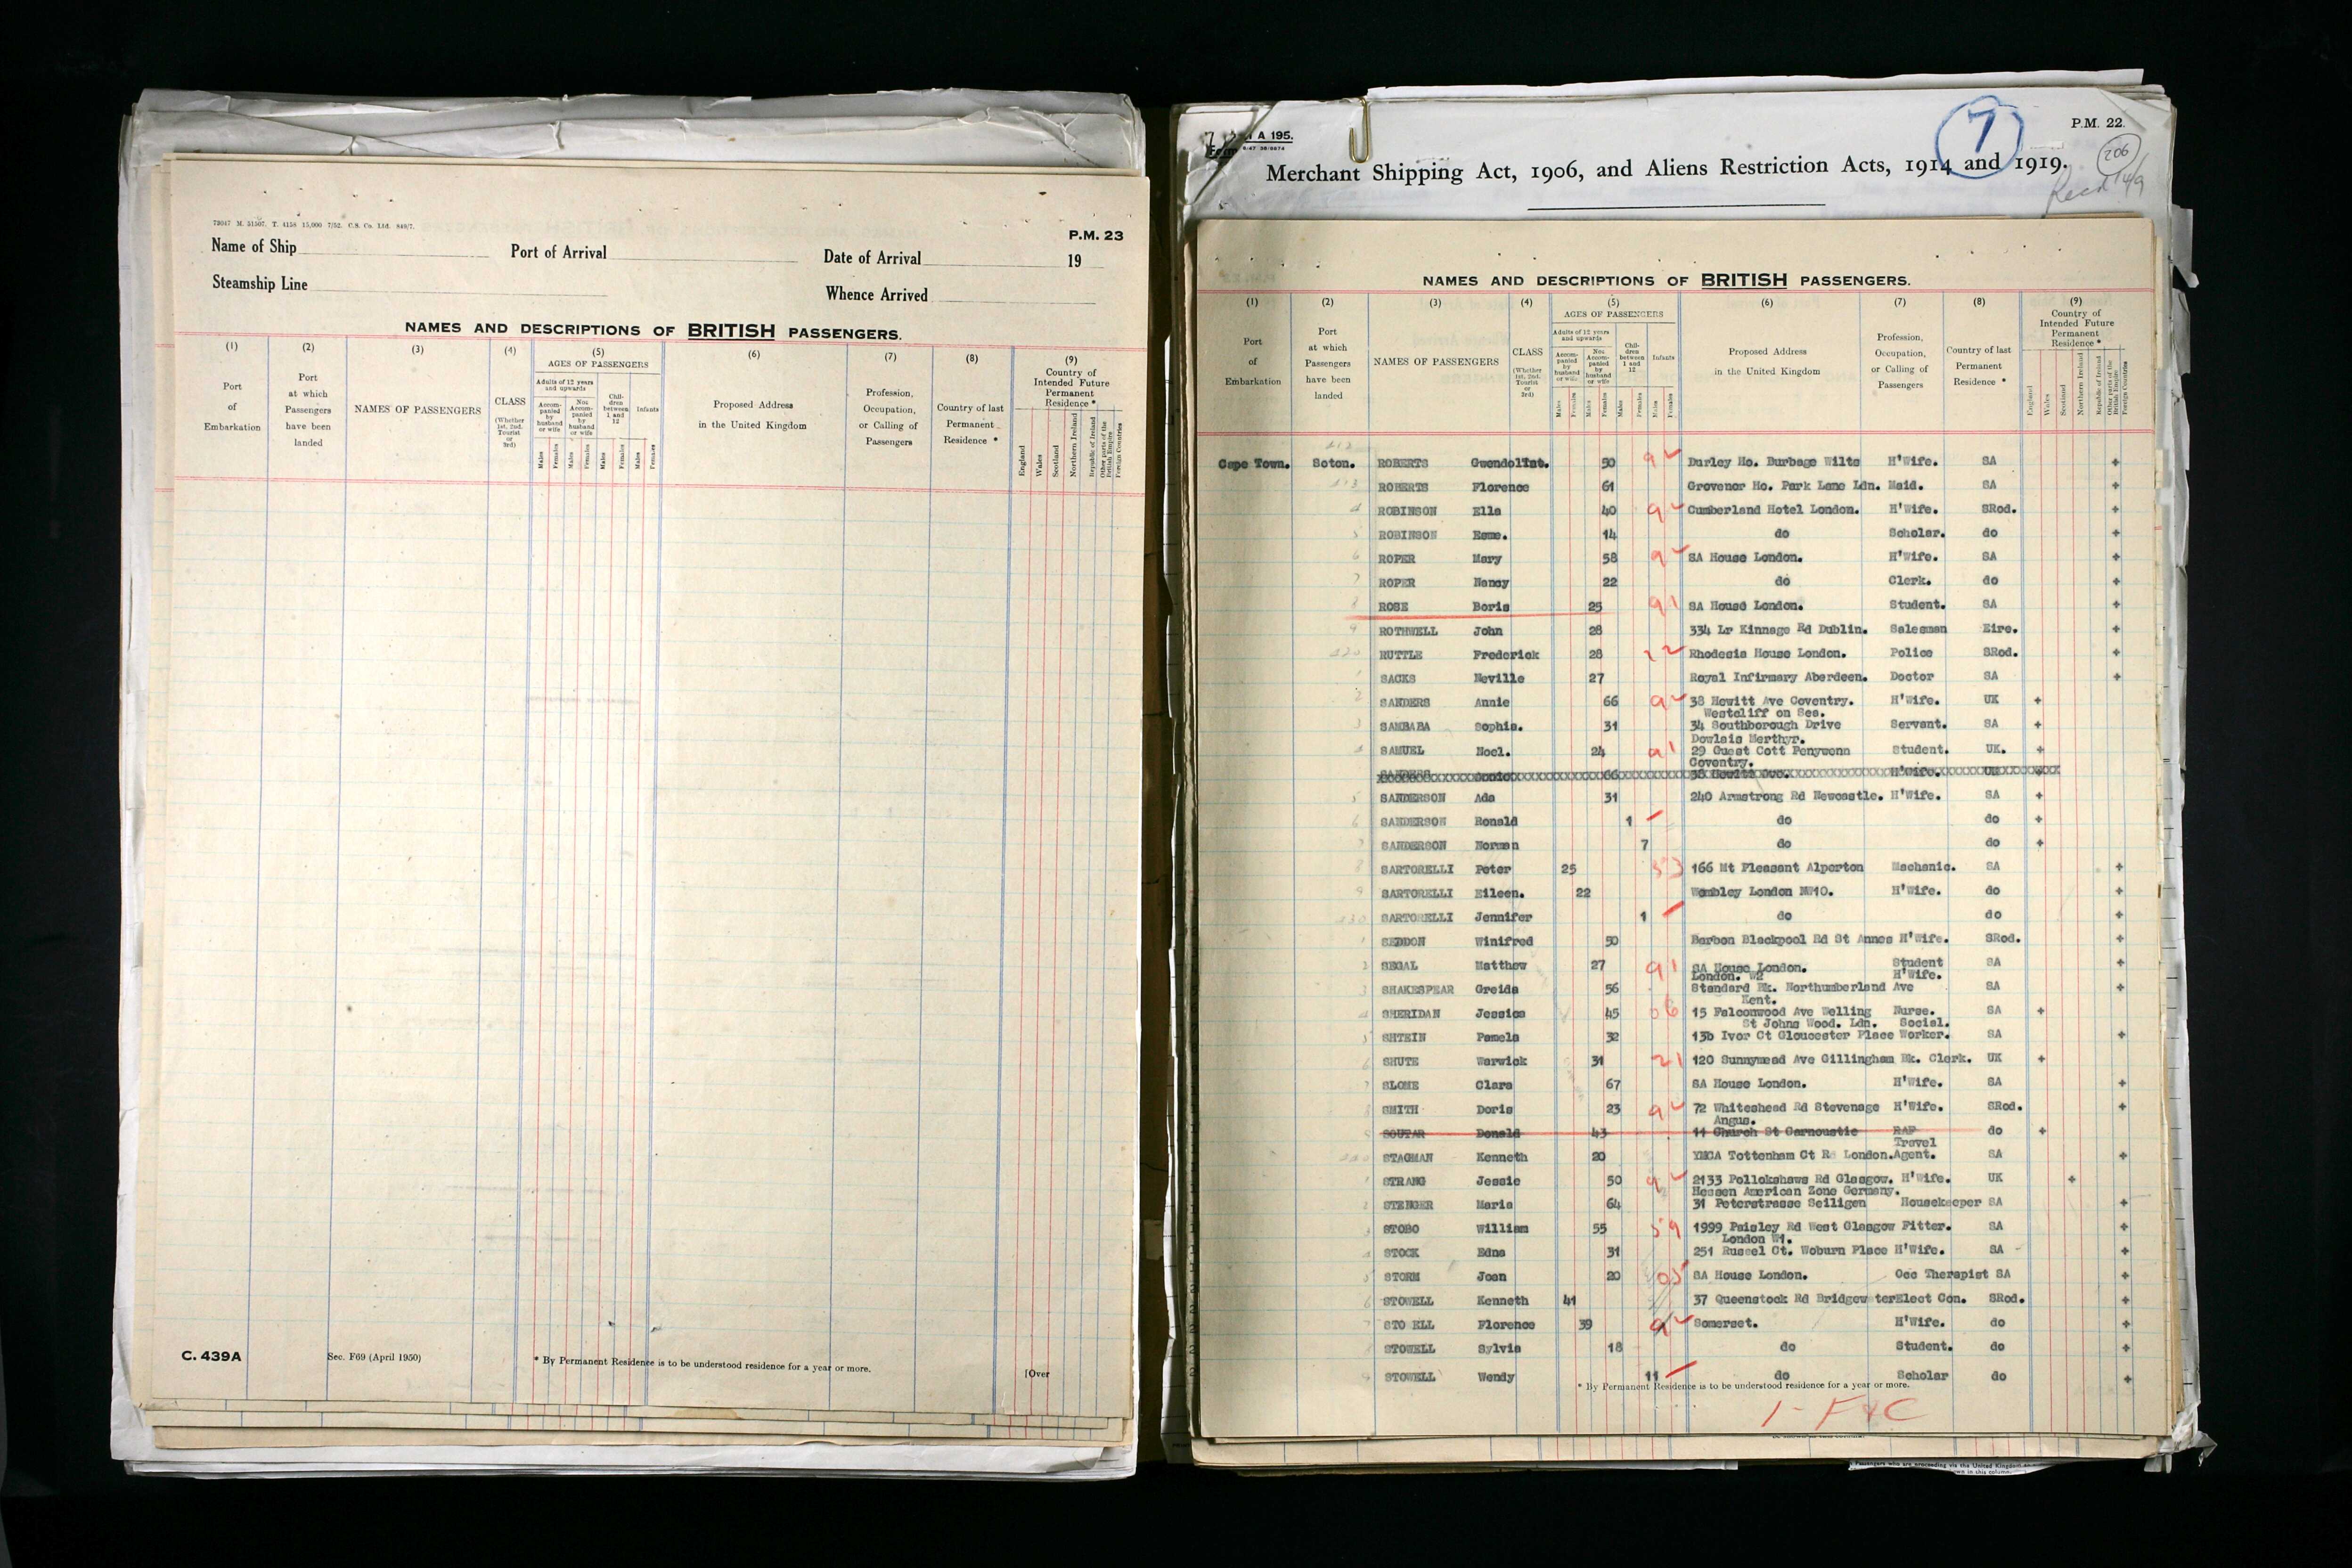 73047 M. 51507. T. 4158 15,000 7/52. C.S. Co. Ltd. 848/7.
P.M. 23
Name of Ship
Port of Arrival
Date of Arrival
19
Steamship Line
Whence Arrived
NAMES AND DESCRIPTIONS OF BRITISH PASSENGERS.
(1) (2) (3) (4) (5) (6) (7) (8) (9)
Port of Embarkation
Port at which Passengers have been landed
NAMES OF PASSENGERS
CLASS (Whether 1st, 2nd, Tourist or 3rd)
AGES OF PASSENGERS
Adults of 12 years and upwards
Accompanied by husband or wife
Not Accompanied by husband or wife
Children between 1 and 12
Infants
Males Females Males Females Males Females Males Females
Proposed Address in the United Kingdom
Profession, Occupation, or Calling of Passengers
Country of last Permanent Residence *
Country of Intended Future Permanent Residence *
England Wales Scotland Northern Ireland Republic of Ireland Other parts of the British Empire Foreign Countries
C. 439A
Sec. F69 (April 1950)
* By Permanent Residence is to be understood residence for a year or more.
[Over
A 195.
7
P.M. 22.
206
Merchant Shipping Act, 1906, and Aliens Restriction Acts, 1914 and 1919.
NAMES AND DESCRIPTIONS OF BRITISH PASSENGERS.
(1) (2) (3) (4) (5) (6) (7) (8) (9)
Port of Embarkation
Port at which Passengers have been landed
NAMES OF PASSENGERS
CLASS (Whether 1st, 2nd, Tourist or 3rd)
AGES OF PASSENGERS
Adults of 12 years and upwards
Accompanied by husband or wife
Not Accompanied by husband or wife
Children between 1 and 12
Infants
Males Females Males Females Males Females Males Females
Proposed Address in the United Kingdom
Profession, Occupation, or Calling of Passengers
Country of last Permanent Residence *
Country of Intended Future Permanent Residence *
England Wales Scotland Northern Ireland Republic of Ireland Other parts of the British Empire Foreign Countries
Cape Town. Soton. ROBERTS Gwendol Tnt. 50 Durley Ho. Burbage Wilts H'Wife. SA +
ROBERTS Florence 61 Grovenor Ho. Park Lane Ldn. Maid. SA +
ROBINSON Ella 40 Cumberland Hotel London. H'Wife. SRod. +
ROBINSON Esme. 14 do Scholar. do +
ROPER Mary 58 SA House London. H'Wife. SA +
ROPER Nancy 22 do Clerk. do +
ROSE Boris 25 SA House London. Student. SA +
ROTHWELL John 28 334 Lr Kinnage Rd Dublin. Salesman Eire. +
RUTTLE Frederick 28 Rhodesia House London. Police SRod. +
SACKS Neville 27 Royal Infirmary Aberdeen. Doctor SA +
SANDERS Annie 66 38 Hewitt Ave Coventry. H'Wife. UK +
Westcliff on Sea.
SAMBABA Sophia. 31 34 Southborough Drive Servant. SA +
Dowlais Merthyr.
SAMUEL Noel. 24 29 Guest Cott Penywenn Student. UK. +
Coventry.
SANDERS Annie 66 38 Hewitt Ave. H'Wife. UK +
SANDERSON Ada 31 240 Armstrong Rd Newcastle. H'Wife. SA +
SANDERSON Ronald 1 do do +
SANDERSON Norman 7 do do +
SARTORELLI Peter 25 166 Mt Pleasant Alperton Mechanic. SA +
SARTORELLI Eileen. 22 Wembley London NW10. H'Wife. do +
SARTORELLI Jennifer 1 do do +
SEDDON Winifred 50 Barbon Blackpool Rd St Annes H'Wife. SRod. +
SEGAL Matthew 27 SA House London. Student SA +
London. W2 H'Wife.
SHAKESPEAR Greida 56 Standard Bk. Northumberland Ave SA +
Kent.
SHERIDAN Jessica 45 15 Falconwood Ave Welling Nurse. SA +
St Johns Wood. Ldn. Social.
SHTEIN Pamela 32 13b Ivor Ct Gloucester Place Worker. SA +
SHUTE Warwick 31 120 Sunnymead Ave Gillingham Bk. Clerk. UK +
SLOME Clara 67 SA House London. H'Wife. SA +
SMITH Doris 23 72 Whiteshead Rd Stevenage H'Wife. SRod. +
Angus.
SOUTAR Donald 43 11 Church St Carnoustie RAF do +
Travel
STAGMAN Kenneth 20 YMCA Tottenham Ct R London. Agent. SA +
STRANG Jessie 50 2133 Pollokshaws Rd Glasgow. H'Wife. UK +
Hessen American Zone Germany.
STENGER Maria 64 31 Peterstrasse Seiligen Housekeeper SA +
STOBO William 55 1999 Paisley Rd West Glasgow Fitter. SA +
London W1.
STOCK Edna 31 251 Russel Ct. Woburn Place H'Wife. SA +
STORM Joan 20 SA House London. Occ Therapist SA +
STOWELL Kenneth 41 37 Queenstock Rd Bridgewater Elect Con. SRod. +
STO ELL Florence 39 Somerset. H'Wife. do +
STOWELL Sylvia 18 do Student. do +
STOWELL Wendy 11 do Scholar do +
* By Permanent Residence is to be understood residence for a year or more.